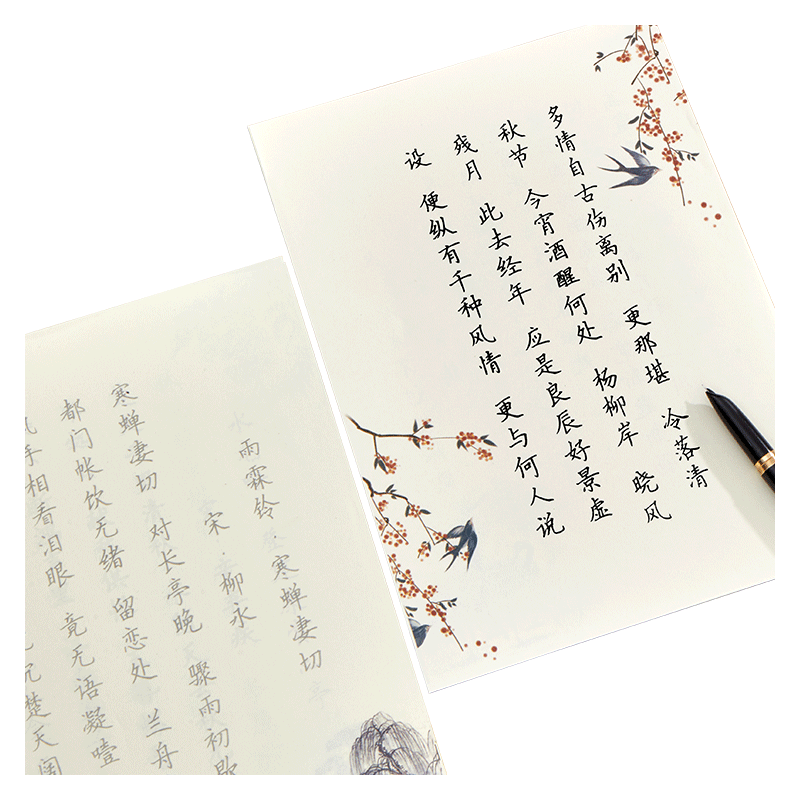 雨霖铃·寒蝉凄切
宋·柳永
寒蝉凄切 对长亭晚 骤雨初歇
都门帐饮无绪 留恋处 兰舟
手相看泪眼 竟无语凝噎
沉楚天阔
多情自古伤离别 更那堪 冷落清
秋节 今宵酒醒何处 杨柳岸 晓风
残月 此去经年 应是良辰好景虚
设 便纵有千种风情 更与何人说